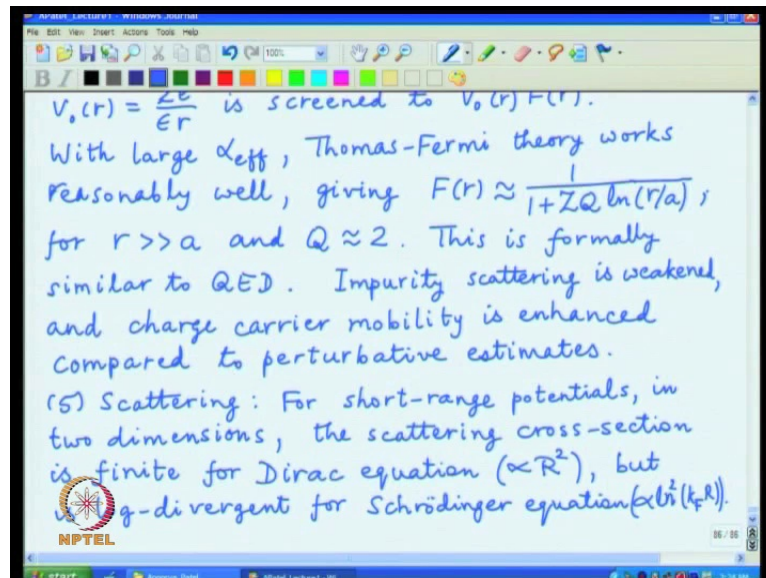 APatel_Lecture1 - Windows Journal
File Edit View Insert Actions Tools Help
100%
B I
V₀(r) = Ze/ϵr is screened to V₀(r) F(r).
With large α_eff, Thomas-Fermi theory works
reasonably well, giving F(r) ≈ 1/(1+ZQ ln(r/a)),
for r>>a and Q ≈ 2. This is formally
similar to QED. Impurity scattering is weakened,
and charge carrier mobility is enhanced
compared to perturbative estimates.
(5) Scattering: For short-range potentials, in
two dimensions, the scattering cross-section
is finite for Dirac equation (∝R²), but
g-divergent for Schrödinger equation(∝ln²(k_F R)).
NPTEL
86 / 86
start